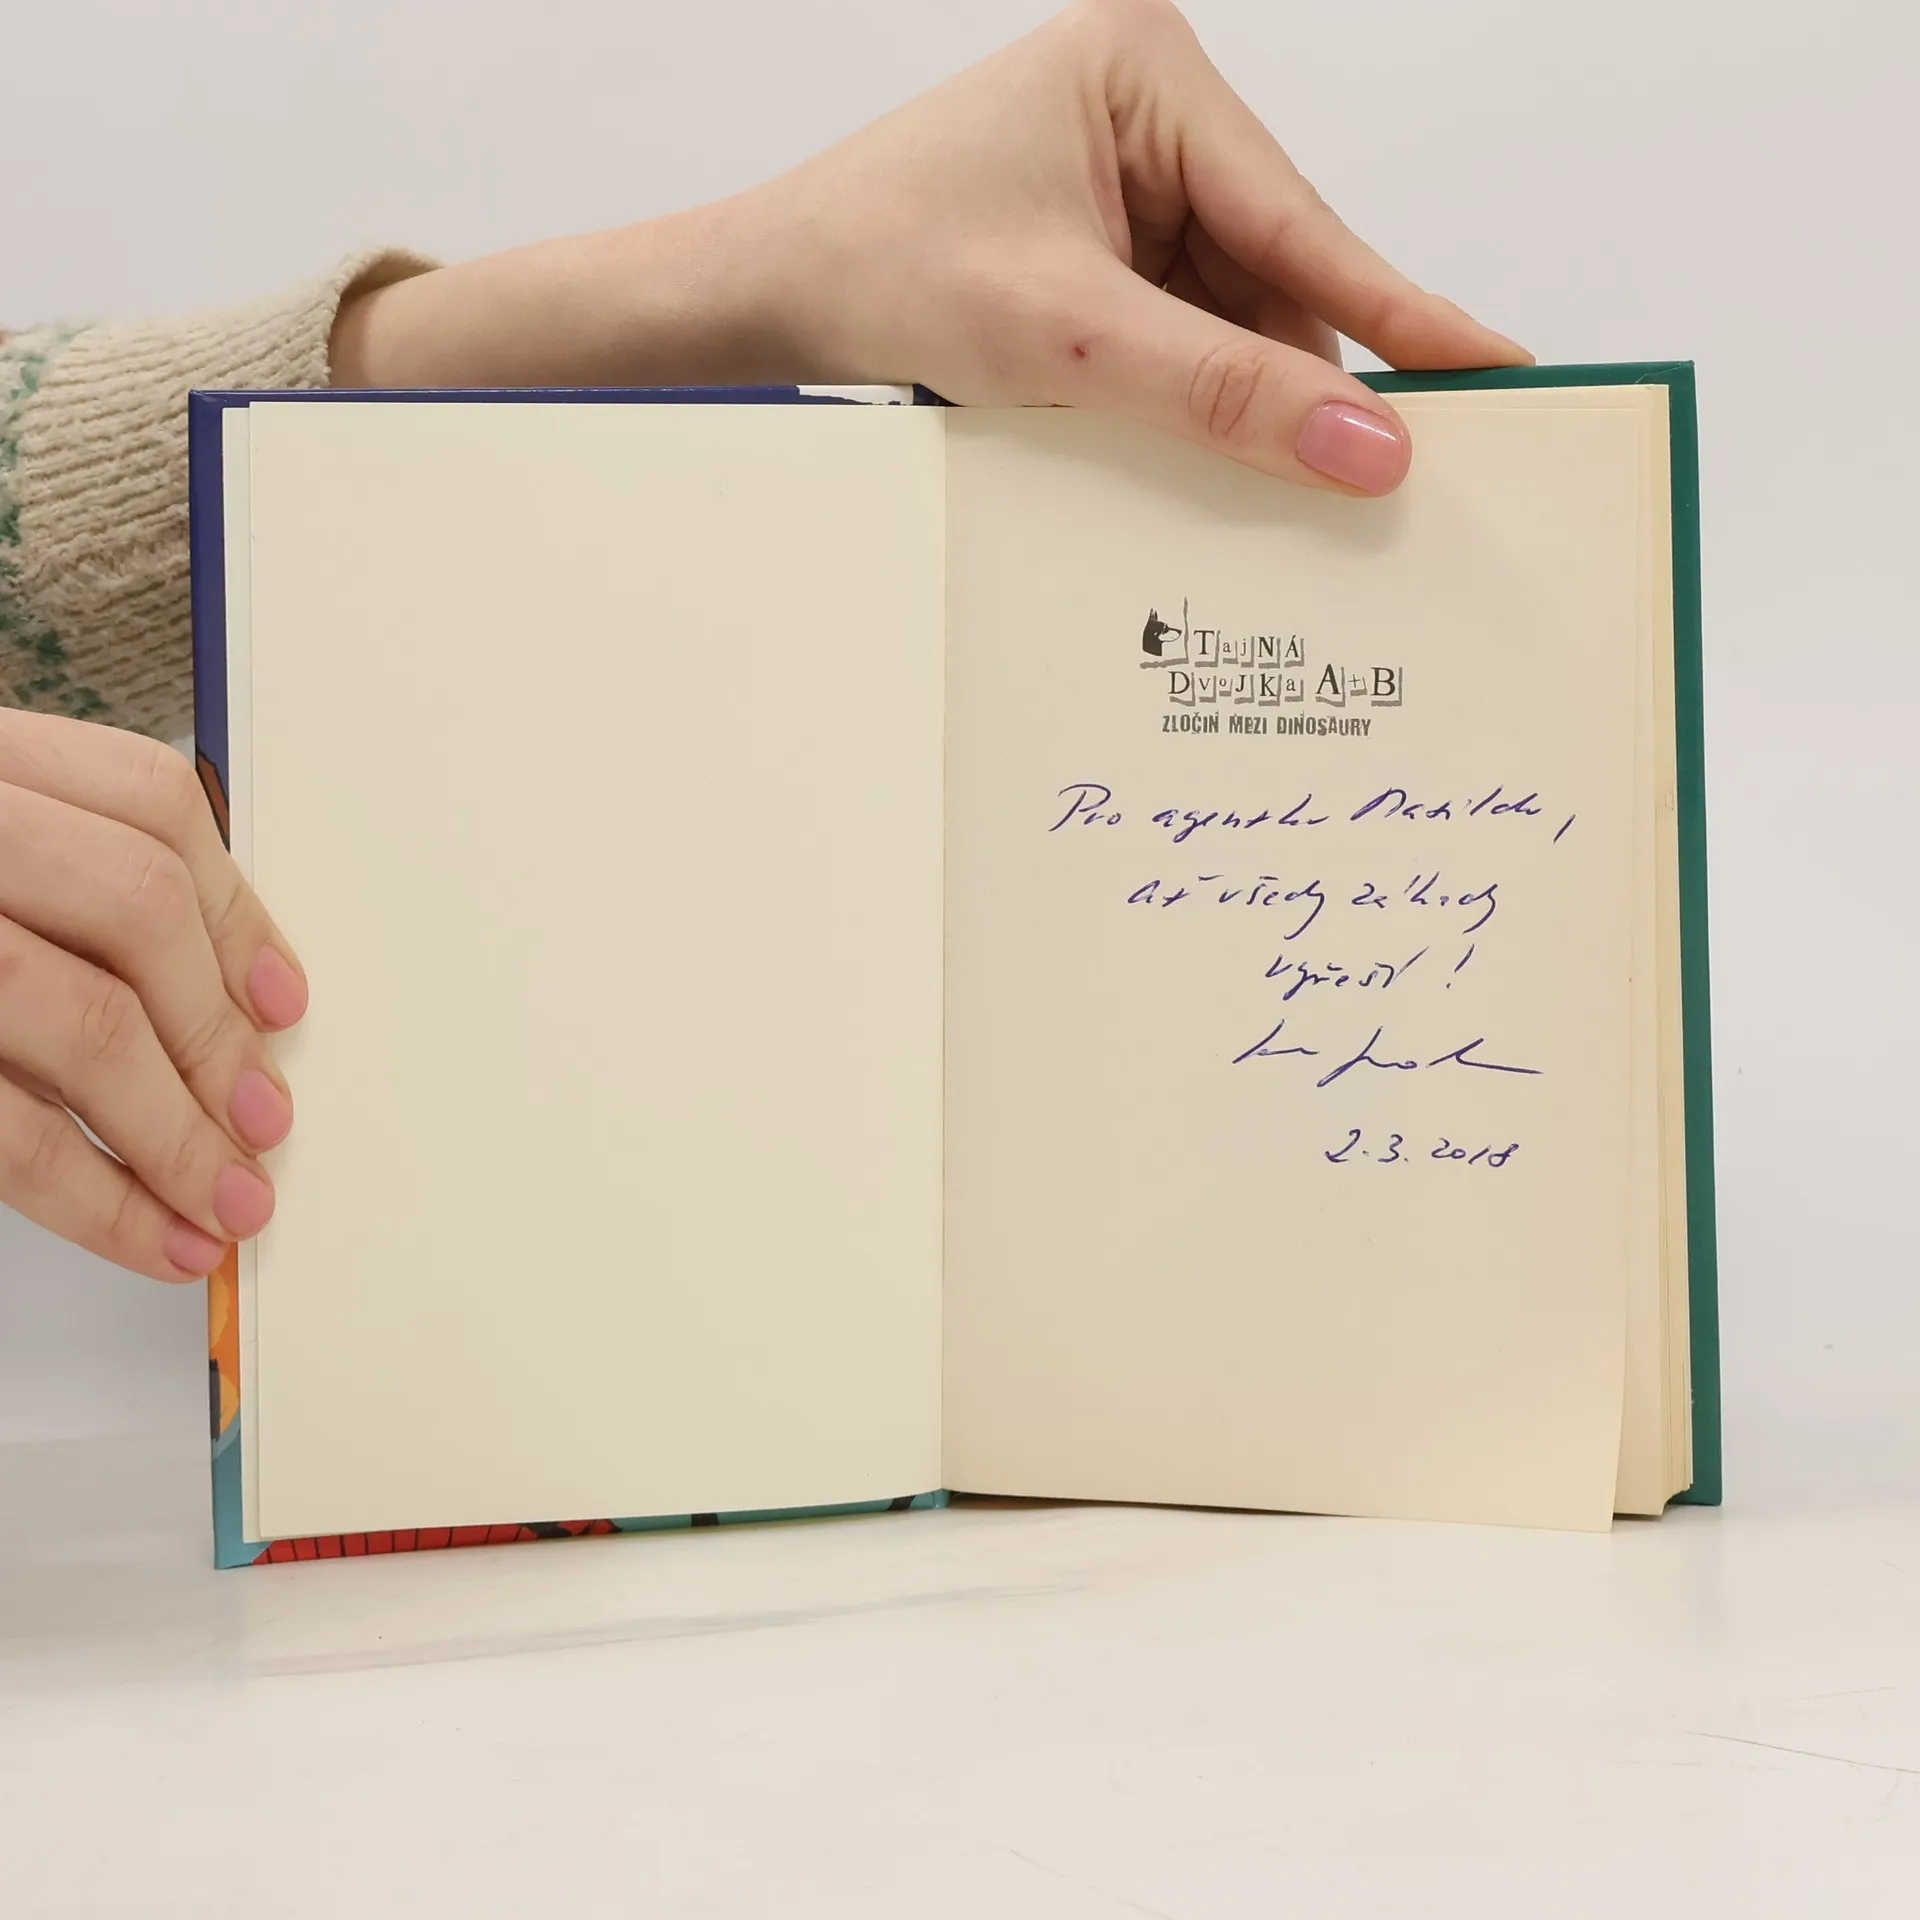 TajNÁ
DvoJKa A+B
ZLOČIN MEZI DINOSAURY
Pro agentku Matildu,
ať všedy záhady
vyřeší!
2.3.2018